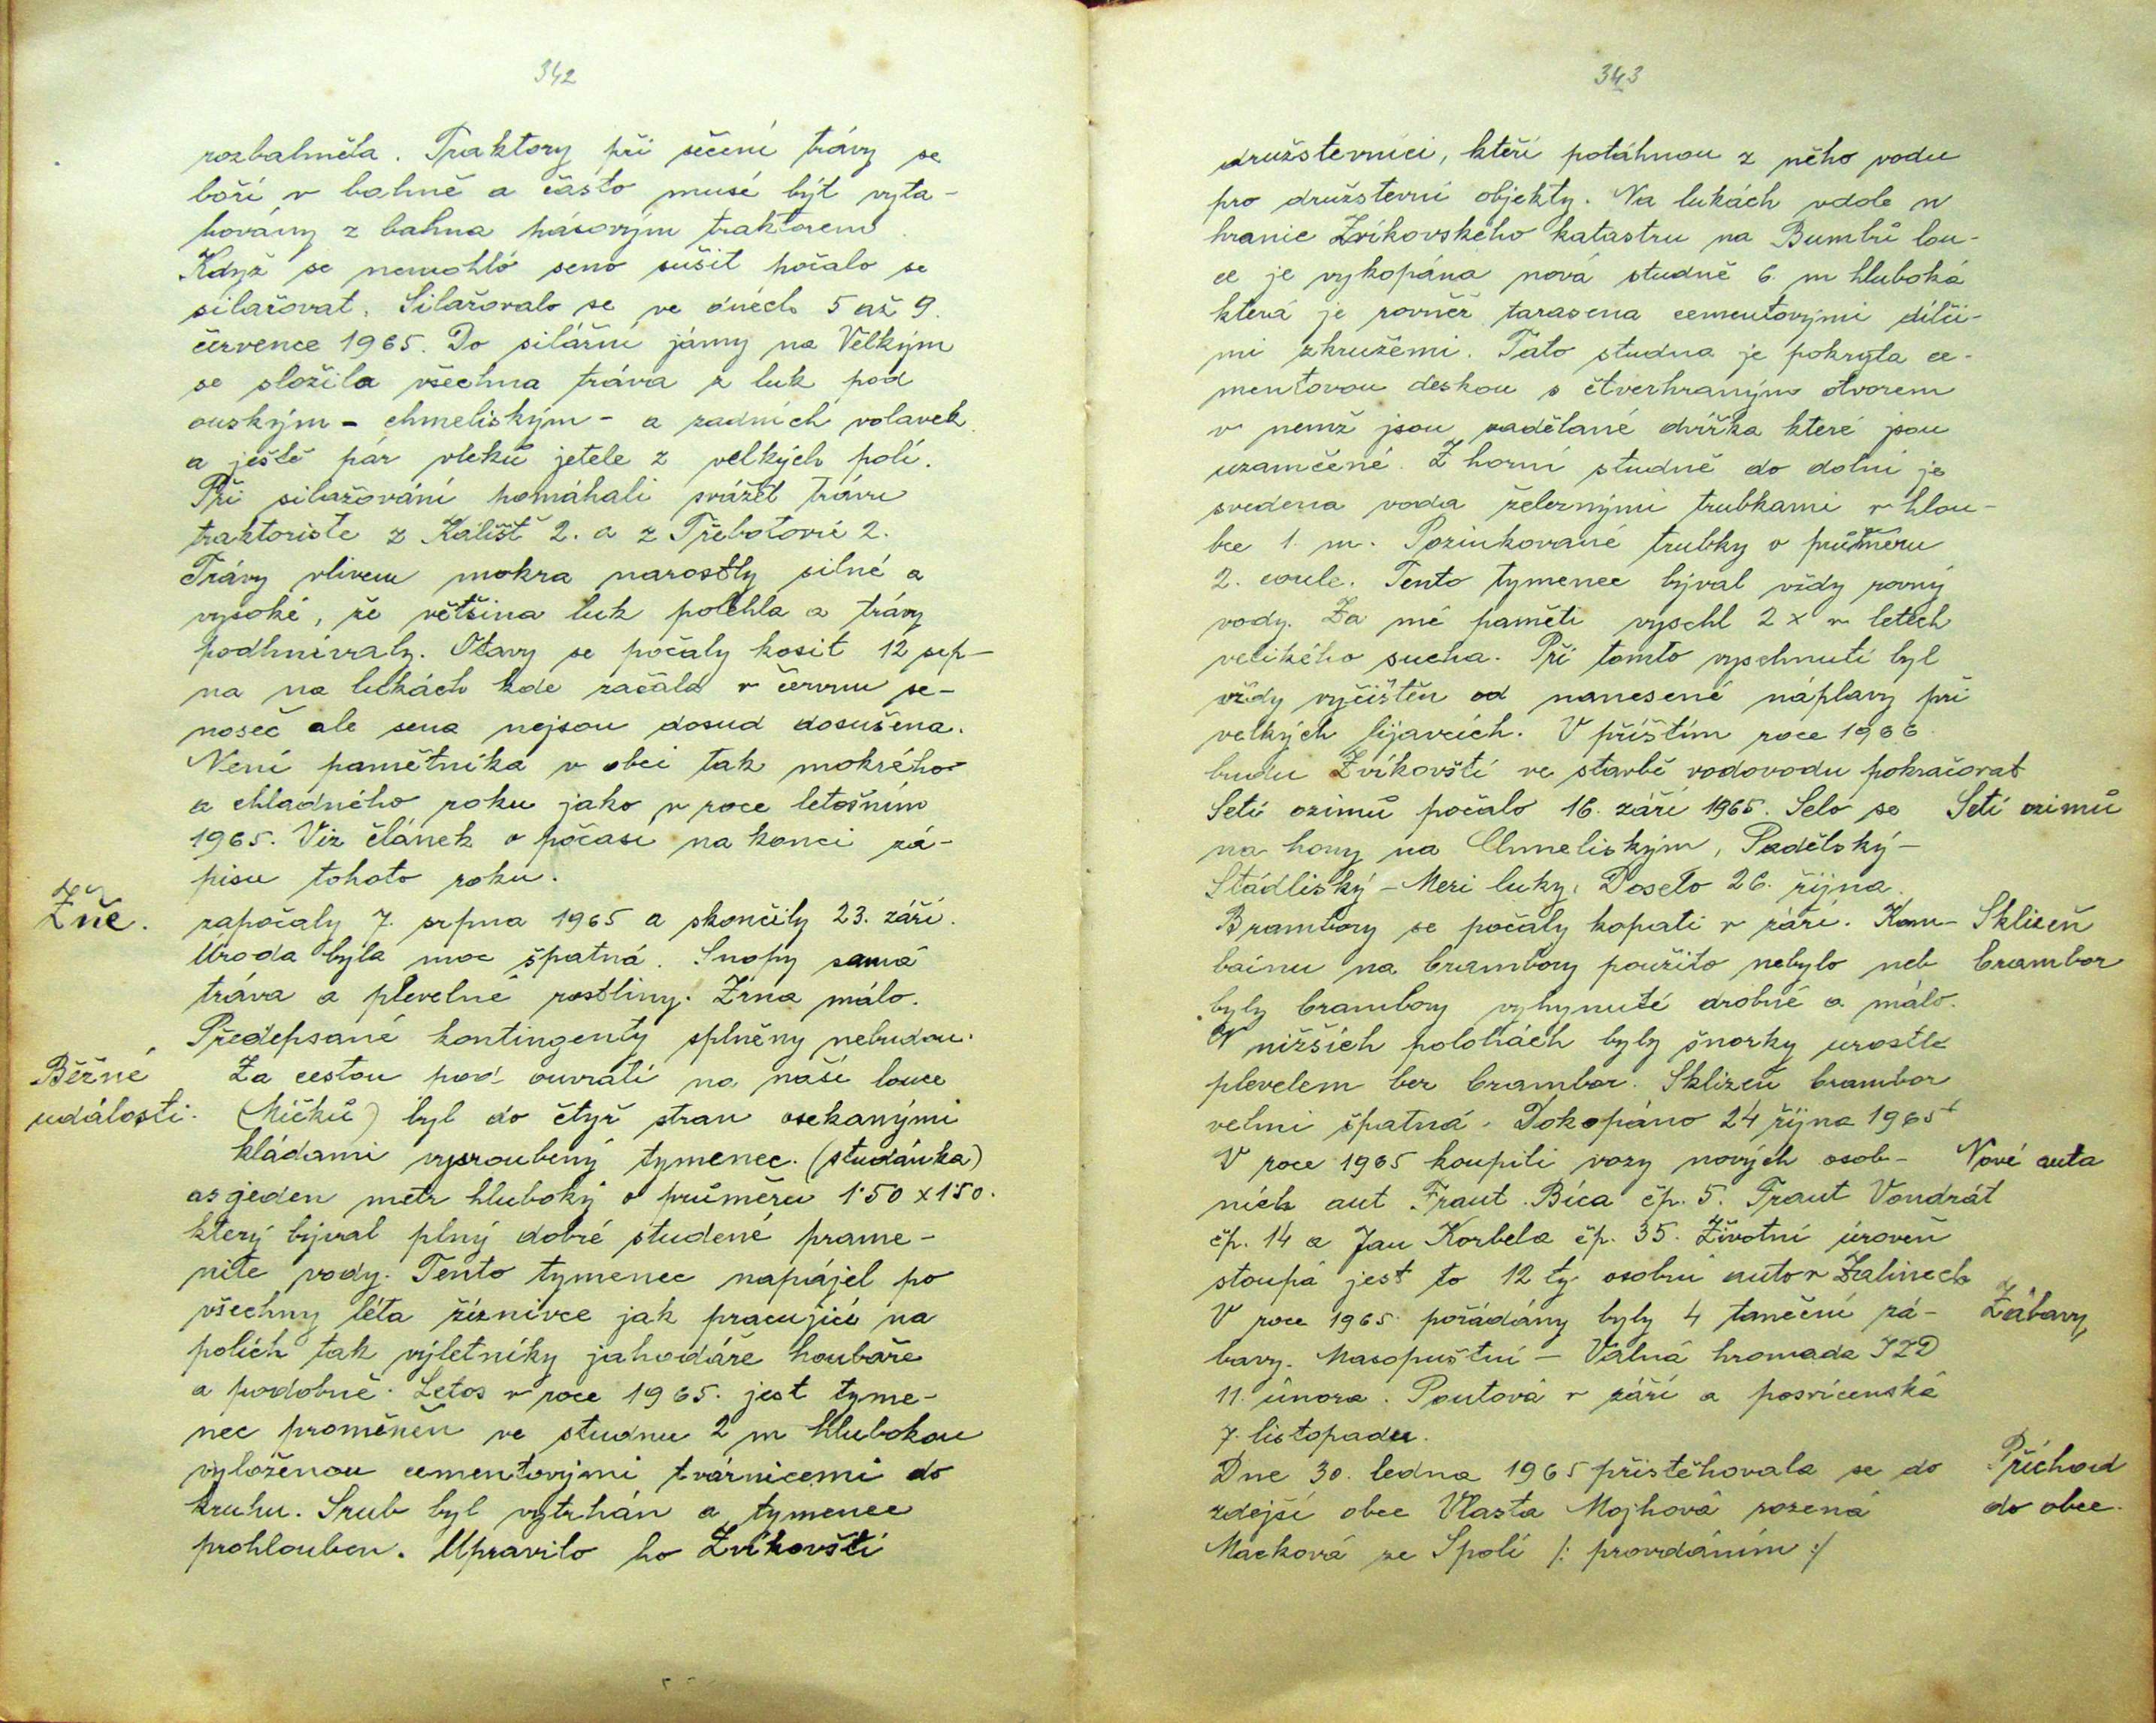 342
rozbahněla. Traktory při sečení trávy se
boří v bahně a často musí být vyta-
hovány z bahna pásovým traktorem.
Když se nemohlo seno sušit počalo se
silažovat. Silažovalo se ve dnech 5 až 9.
července 1965. Do silážní jámy na Velkým
se složila všechna tráva z luk pod
ouským - chmeliským - a zadních volavek
a ještě pár vleků jetele z velkých polí.
Při silažování pomáhali svážet trávu
traktoristé z Kališť 2. a z Třebotovic 2.
Trávy vlivem mokra narostly silné a
vysoké, že většina luk polehla a trávy
podhnívaly. Otavy se počaly kosit 12 srp-
na na lukách kde začala v červnu se-
noseč ale sena nejsou dosud dosušena.
Není pamětníka v obci tak mokrého
a chladného roku jako v roce letošním
1965. Viz článek o počasí na konci zá-
pisu tohoto roku.
Žně. započaly 7. srpna 1965 a skončily 23. září.
Úroda byla moc špatná. Snopy samá
tráva a plevelné rostliny. Zrna málo.
Předepsané kontingenty splněny nebudou.
Běžné Za cestou pod ouvratí na naší louce
události. (Mičků) byl do čtyř stran osekanými
kládami vyroubený tymenec. (studánka)
asi jeden metr hluboký o průměru 1·50 x 1·50.
který býval plný dobré studené prame-
nité vody. Tento tymenec napájel po
všechny léta žíznivce jak pracující na
polích tak výletníky jahodáře houbaře
a podobně. Letos v roce 1965. jest tyme-
nec proměněn ve studnu 2 m hlubokou
vyloženou cementovými tvárnicemi do
kruhu. Srub byl vytrhán a tymenec
prohlouben. Upravilo ho Zvíkovští
343
družstevníci, kteří potáhnou z něho vodu
pro družstevní objekty. Na lukách vdole u
hranic Zvíkovského katastru na Bumbrů lou-
ce je vykopána nová studně 6. m hluboká
která je rovněž tarasena cementovými dílčí-
mi zkružemi. Tato studna je pokryta ce-
mentovou deskou s čtverhraným otvorem
v nemž jsou zadělané dvířka které jsou
uzamčené. Z horní studně do dolní je
svedena voda železnými trubkami v hlou-
bce 1. m. Pozinkované trubky o průměru
2. coule. Tento tymenec býval vždy rovný
vody. Za mé paměti vyschl 2 x v letech
velikého sucha. Při tomto vyschnutí byl
vždy vyčištěn od nanesené náplavy při
velkých lijavcích. V příštím roce 1966
budu Zvíkovští ve stavbě vodovodu pokračovat
Setí ozimů počalo 16. září 1965. Selo se Setí ozimů
na hony na Chmeliským, Padělský -
Stádliský - Mezi luky. Doseto 26. října.
Brambory se počaly kopati v září. Kom- Sklizeň
bainu na brambory použito nebylo neb brambor
byly brambory vyhynuté drobné a málo.
V nižších polohách byly šnorky urostlé
plevelem bez brambor. Sklizeň brambor
velmi špatná. Dokopáno 24 října 1965
V roce 1965 koupili vozy nových osob- Nové auta
ních aut Frant. Bíca čp. 5. Frant Vondrát
čp. 14 a Jan Korbela čp. 35. Životní úroveň
stoupá jest to 12 tý osobní auto v Zalinech
V roce 1965. pořádány byly 4 taneční zá- Zábavy
bavy. Masopustní - Valná hromada JZD
11. února. Poutová v září a posvícenská
7. listopadu.
Dne 30. ledna 1965 přistěhovala se do Příchod
zdejší obce Vlasta Mojhová rozená do obce.
Macková ze Spolí /: provdáním :/